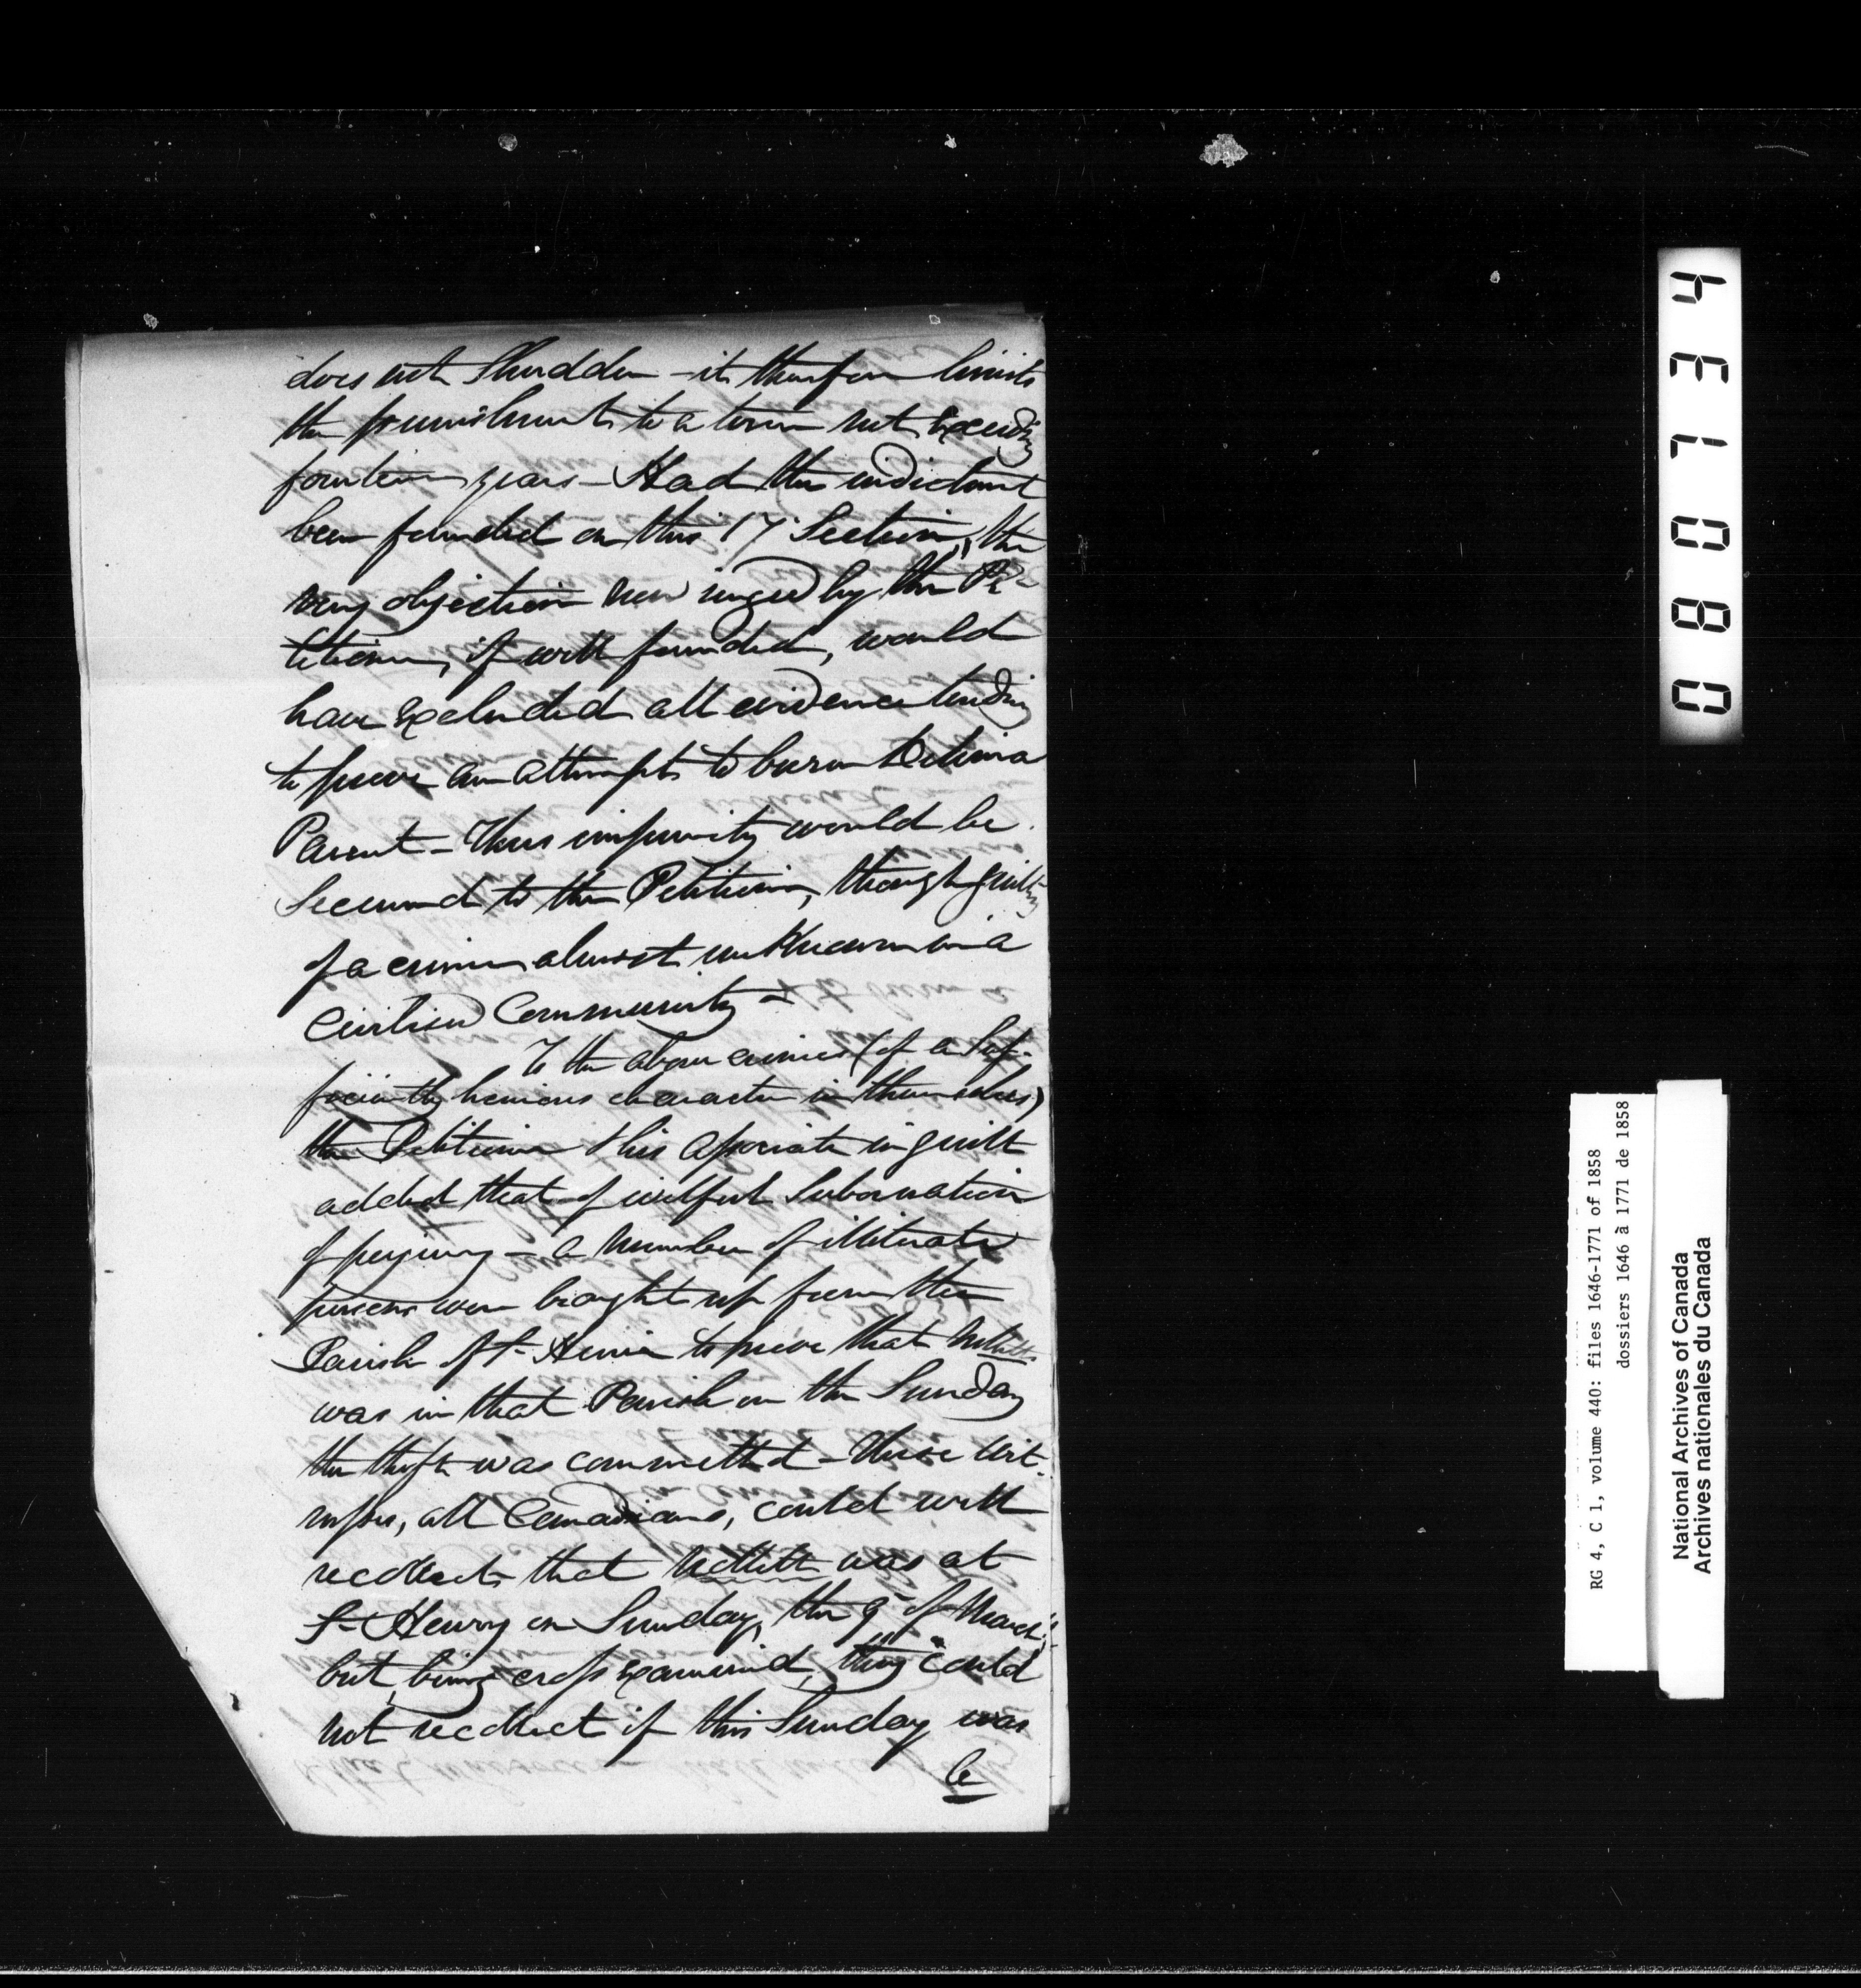 does not Shudder - it therefore limits
the punishment to a term not Exceeding
fourteen years - Had the indictment
been founded on this 17 Section, the
very objection now urged by the Pe-
titioner, if well founded, would
have Excluded all evidence tending
to prove an attempt to burn
Parent - Thus impunity would be
Secured to the Petitioner, though guilty
of a crime almost unknown in a
Civilised Community -
To the above crimes (of a Suf-
ficiently heinous character in themselves)
the Petitioner & his associate in guilt
added that of wilful Subornation
of perjury - a number of illiterate
persons were brought up from the
Parish of St. Henri to prove that
was in that Parish on the Sunday
the theft was committed - These wit-
nesses, all Canadians, could well
recollect that was at
St Henry on Sunday, the 9 of March,
but, being cross Examined, they could
not recollect if this Sunday was
le
087034
RG 4, C 1, volume 440: files 1646-1771 of 1858
dossiers 1646 à 1771 de 1858
National Archives of Canada
Archives nationales du Canada